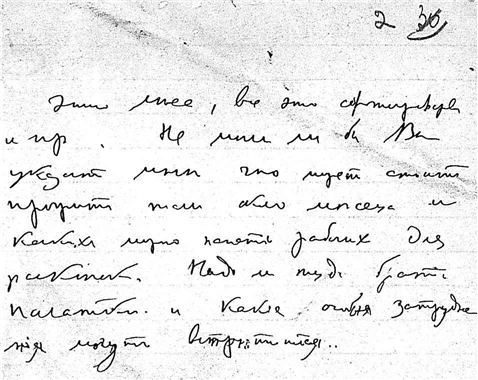 2 36
мнее, все это сортировка
и пр. Не могли ли бы Вы
указать мне что будет стоить
прожить там около месяца и
каких нужно нанять рабочих для
раскопок. Надо ли туда брать
палатки. и какие особыя затрудне
ния могут встретиться..